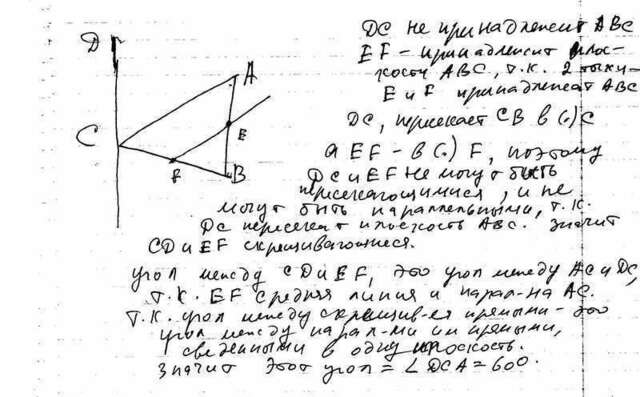 D
A
C
E
F
B
DC не принадлежит ABC
EF – принадлежит плос-
кости ABC, т.к. 2 точки –
E и F принадлежат ABC
DC, пересекает CB в (·) C
а EF – в (·) F, поэтому
DC и EF не могут быть
пересекающимися, и не
могут быть параллельными, т.к.
DC пересекает плоскость ABC. значит
CD и EF скрещивающиеся.
угол между CD и EF, это угол между AC и DC,
т.к. EF средняя линия и парал-на AC.
т.к. угол между скрещив-ся прямыми – это
угол между парал-ми им прямыми,
сведенными в одну плоскость.
значит этот угол = ∠DCA = 60°.